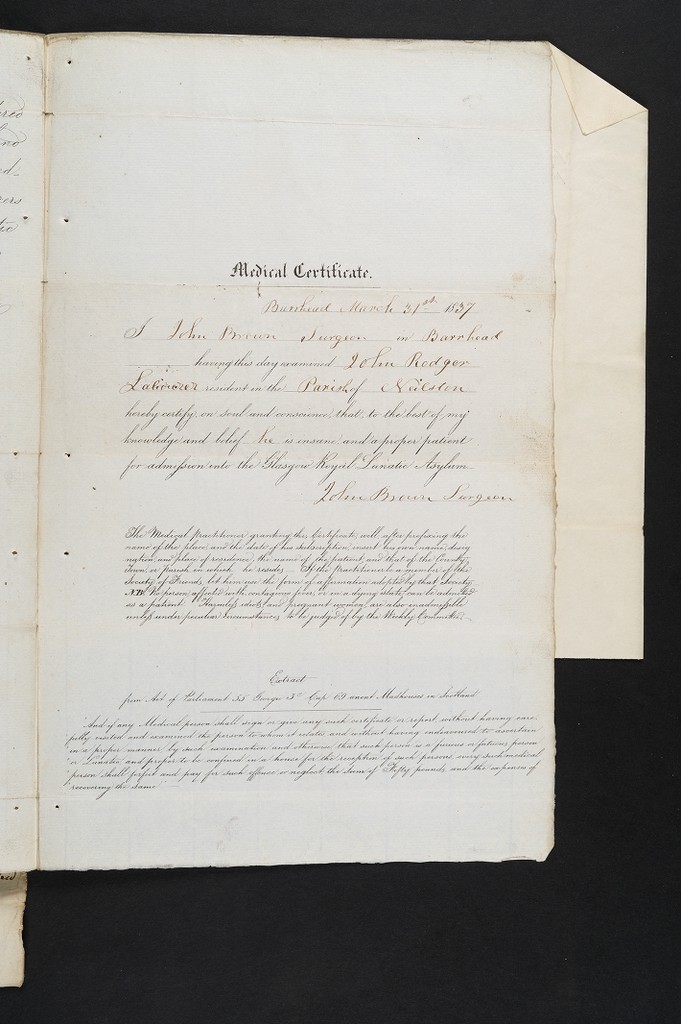 Medical Certificate.
Barrhead March 31st 1837
I John Brown Surgeon in Barrhead
having this day examined John Rodger
Labourer resident in the Parish of Neilston
hereby certify, on soul and conscience, that, to the best of my
knowledge and belief he is insane, and a proper patient
for admission into the Glasgow Royal Lunatic Asylum
John Brown Surgeon
The Medical Practitioner granting this Certificate, will, after prefixing the
name of the place, and the date of his subscription, insert his own name, desig
nation, and place of residence, the name of the patient, and that of the County,
Town, or parish in which he resides. If the Practitioner be a member of the
Society of Friends, let him use the form of affirmation adopted by that society
N.B. No person affected with contagious fever, or in a dying state, can be admitted
as a patient. Harmless idiots, and pregnant women, are also inadmissible
unless under peculiar circumstances, to be judged of by the Weekly Committee.
Extract
from Act of Parliament 55 George 3d Cap 69 anent Madhouses in Scotland
And if any Medical person shall sign or give any such certificate or report without having care-
fully visited and examined the person to whom it relates and without having endeavoured to ascertain
in a proper manner by such examination and otherwise that such person is a furious or fatuous person
or Lunatic and proper to be confined in a house for the reception of such persons, every such medical
person shall forfeit and pay for such offence or neglect, the sum of Fifty pounds, and the expenses of
recovering the same